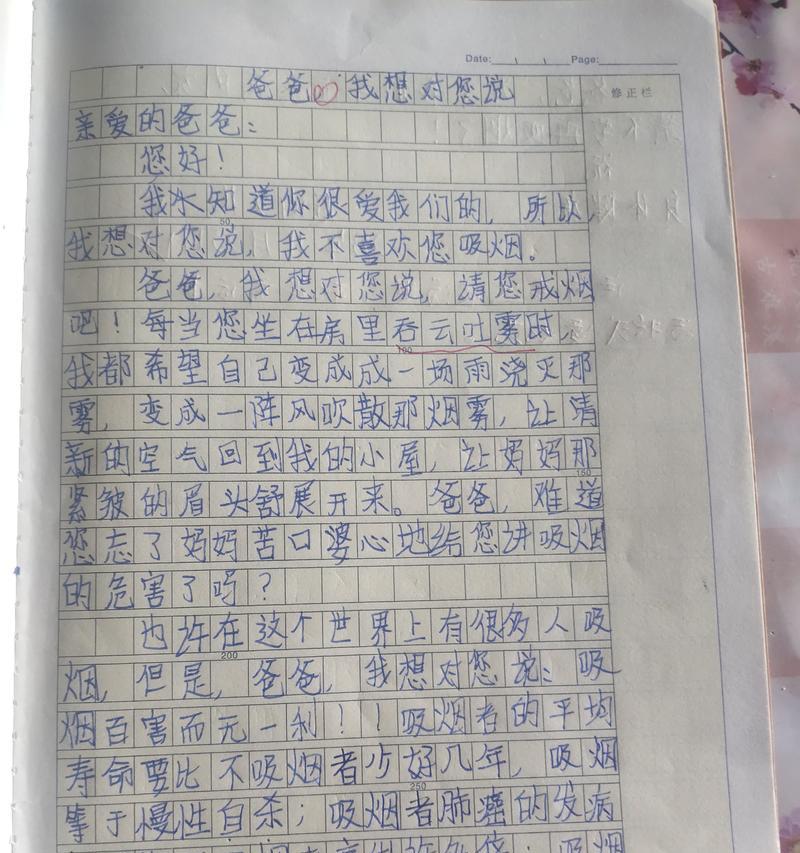 Date: Page:
爸爸，我想对您说
修正栏
亲爱的爸爸：
您好！
我知道你很爱我们的，所以，
50
我想对您说，我不喜欢您吸烟。
爸爸，我想对您说，请您戒烟
吧！每当您坐在房里吞云吐雾时，
100
我都希望自己变成成一场雨浇灭那
雾，变成一阵风吹散那烟雾，让清
新的空气回到我的小屋，让妈妈那
150
紧皱的眉头舒展开来。爸爸，难道
您忘了妈妈苦口婆心地给您讲吸烟
的危害了吗？
也许在这个世界上有很多人吸
200
烟，但是，爸爸，我想对您说：吸
烟百害而无一利！！吸烟者的平均
寿命要比不吸烟者少好几年，吸烟
250
等于慢性自杀；吸烟者肺癌的发病